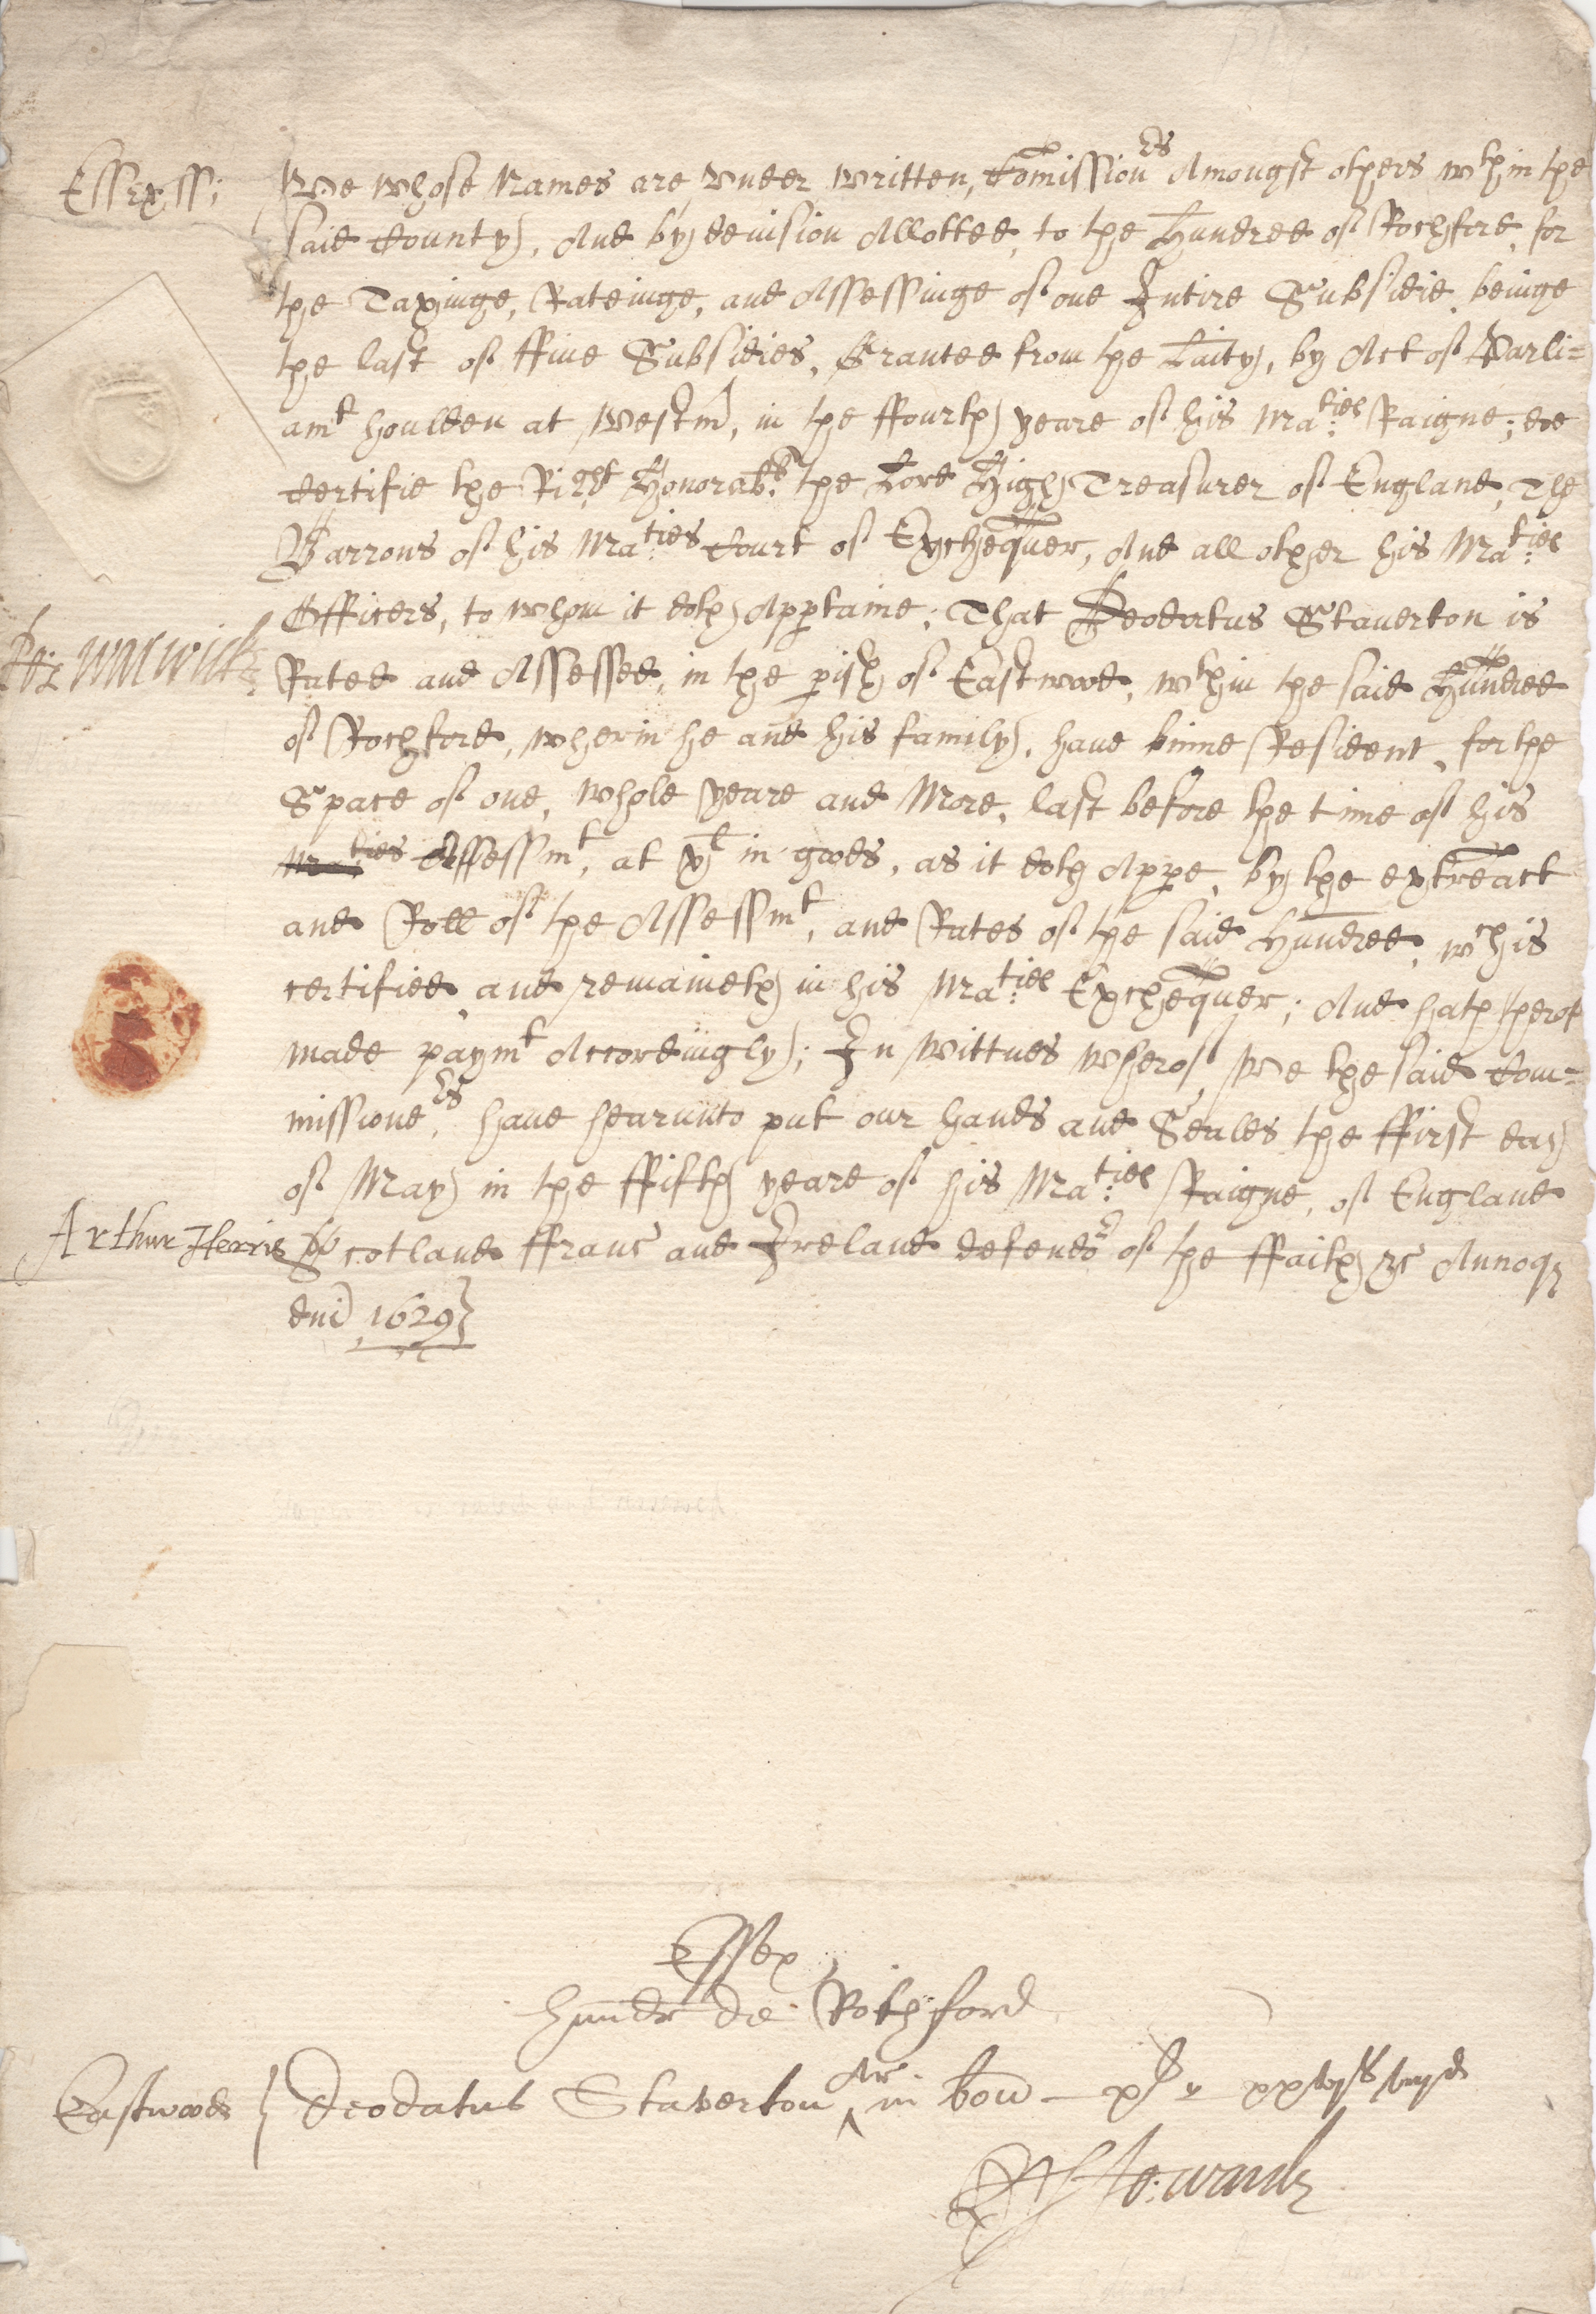 Essex ss:
We whose Names are vnder written, Comission:ers Amongst others wthin the
said County, And by deuision Allotted, to the Hundred of Rochford, for
the Taxinge, Rateinge, and Assessinge of one Intire Subsidie, beinge
the last of ffiue Subsidies, Graunted from the Laity, by Act of Parli=
amt houlden at Westm, in the ffourth yeare of his Ma:ties Raigne; doe
Certifie the Right Honorab:le the Lord High Treasurer of England, The
Barrons of his Ma:ties Court of Exchequer, And all other his Ma:ties
Officers, to whom it doth Appertaine; That Deodatus Stauerton is
Ro: Warwick
Rated and Assessed, in the pish of Eastwood, wthin the said Hundred
of Rochford, wherin he and his family, haue binne Resident, for the
Space of one, whole yeare and More, last before the time of his
Maties Assessmt, at xl in goods, as it doth Appe, by the extreact
and Roll of the Assessmt, and Rates of the said Hundred, wch is
certified, and remaineth in his Ma:ties Exchequer; And hath therof
made paymt Accordingly; In Wittnes wherof, We the said Com=
missione:rs, haue hearunto put our hands and Seales the ffirst day
of May in the ffifth yeare of his Ma:ties Raigne, of England
Arthur Herris
Scotland ffranc and Ireland defendor of the ffaith &c Annoq
dni 1629
Essex
Hundr de Rochford
Eastwood } Deodatus Staverton Ar in bon — xl xxvjs viijd